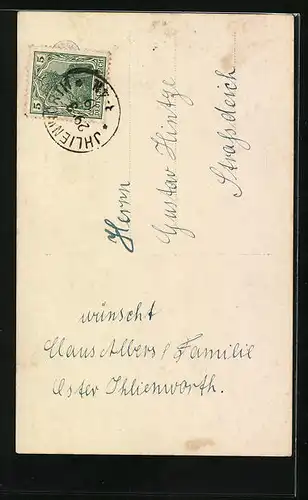 5
5
JHLIENW
26
Herrn
Gustav Hintze
Straßdeich
wünscht
Claus Albers / Familie
Oster Ihlienworth.